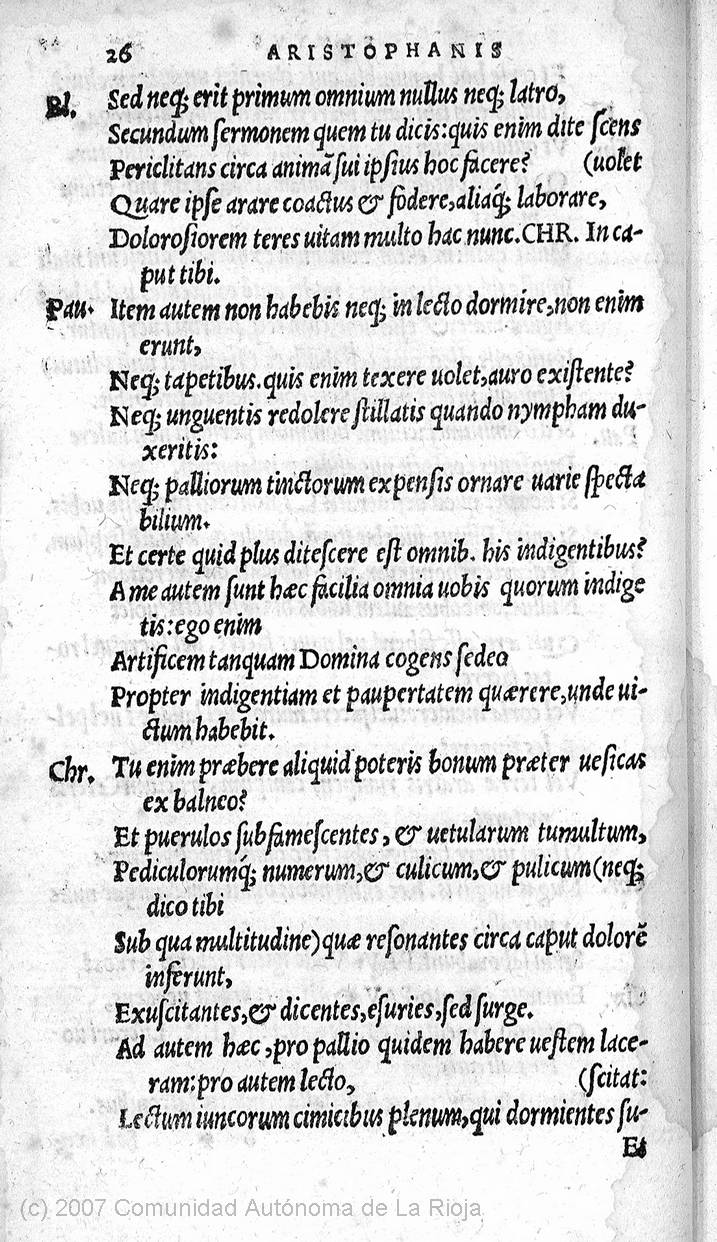 26 ARISTOPHANIS
Bl. Sed neq; erit primum omnium nullus neq; latro,
Secundum sermonem quem tu dicis:quis enim dite scens
Periclitans circa animã sui ipsius hoc facere? (uolet
Quare ipse arare coactus & fodere,aliaq́; laborare,
Dolorosiorem teres uitam multo hac nunc.CHR. In ca-
put tibi.
Pau. Item autem non habebis neq; in lecto dormire,non enim
erunt,
Neq; tapetibus.quis enim texere uolet,auro existente?
Neq; unguentis redolere stillatis quando nympham du-
xeritis:
Neq; palliorum tinctorum expensis ornare uarie specta
bilium.
Et certe quid plus ditescere est omnib. his indigentibus?
A me autem sunt hæc facilia omnia uobis quorum indige
tis:ego enim
Artificem tanquam Domina cogens sedeo
Propter indigentiam et paupertatem quærere,unde ui-
ctum habebit.
Chr. Tu enim præbere aliquid poteris bonum præter uesicas
ex balneo?
Et puerulos subfamescentes, & uetularum tumultum,
Pediculorumq́; numerum,& culicum,& pulicum(neq;
dico tibi
Sub qua multitudine)quæ resonantes circa caput dolorẽ
inferunt,
Exuscitantes,& dicentes,esuries,sed surge.
Ad autem hæc,pro pallio quidem habere uestem lace-
ram:pro autem lecto, (scitat:
Lectum iuncorum cimicibus plenum,qui dormientes su-
Et
(c) 2007 Comunidad Autónoma de La Rioja